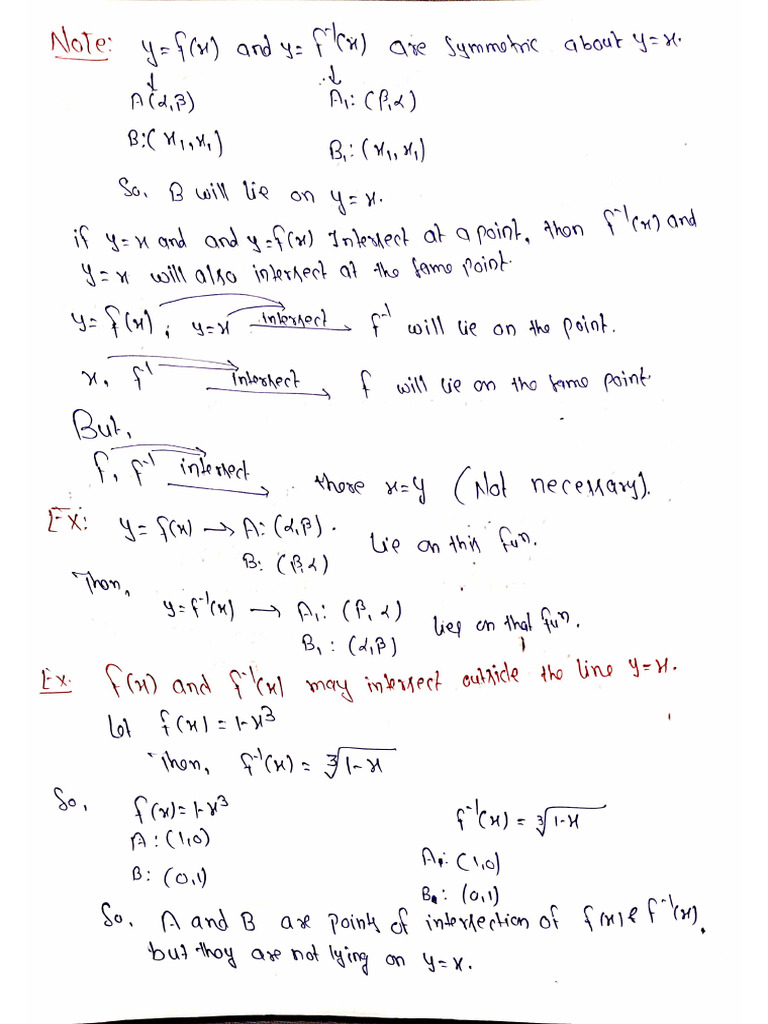 Note: y=f(x) and y= f⁻¹(x) are symmetric about y=x.
↓ ↓
A(α,β) A₁: (β,α)
B:(x₁,x₁) B₁: (x₁,x₁)
So, B will lie on y=x.
if y=x and and y=f(x) Intersect at a point, then f⁻¹(x) and
y=x will also intersect at the same point.
y= f(x), y=x intersect → f⁻¹ will lie on the point.
x, f⁻¹ intersect → f will lie on the same point.
But,
f, f⁻¹ intersect → there x=y (Not necessary).
Ex: y=f(x) → A: (α,β).
B: (β,α) lie on this fuⁿ.
Then,
y=f⁻¹(x) → A₁: (β,α)
B₁: (α,β) lies on that fuⁿ.
Ex. f(x) and f⁻¹(x) may intersect outside the line y=x.
let f(x)=1-x³
Then, f⁻¹(x) = ∛1-x
So, f(x)=1-x³ f⁻¹(x) = ∛1-x
A:(1,0) A₁: (1,0)
B: (0,1) B₁: (0,1)
So, A and B are points of intersection of f(x) & f⁻¹(x),
but they are not lying on y=x.